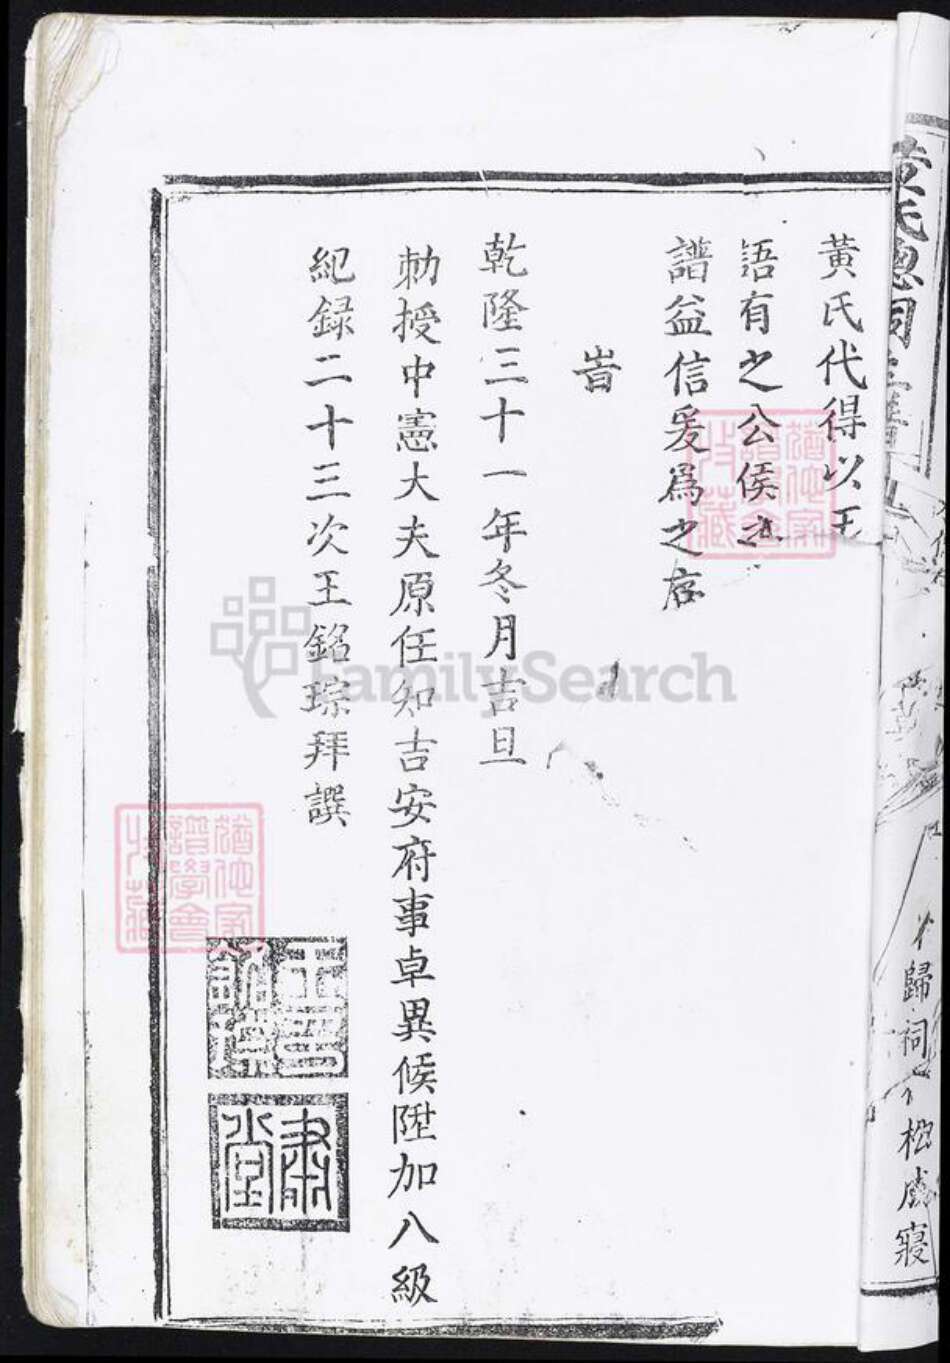 黃氏代得以王
語有之公侯之
譜益信爰為之序
旹
乾隆三十一年冬月吉旦
勅授中憲大夫原任知吉安府事卓異候陞加八級
紀録二十三次王銘琮拜譔
肅堂
黃氏總祠主譜
歸祠
松成寢
FamilySearch